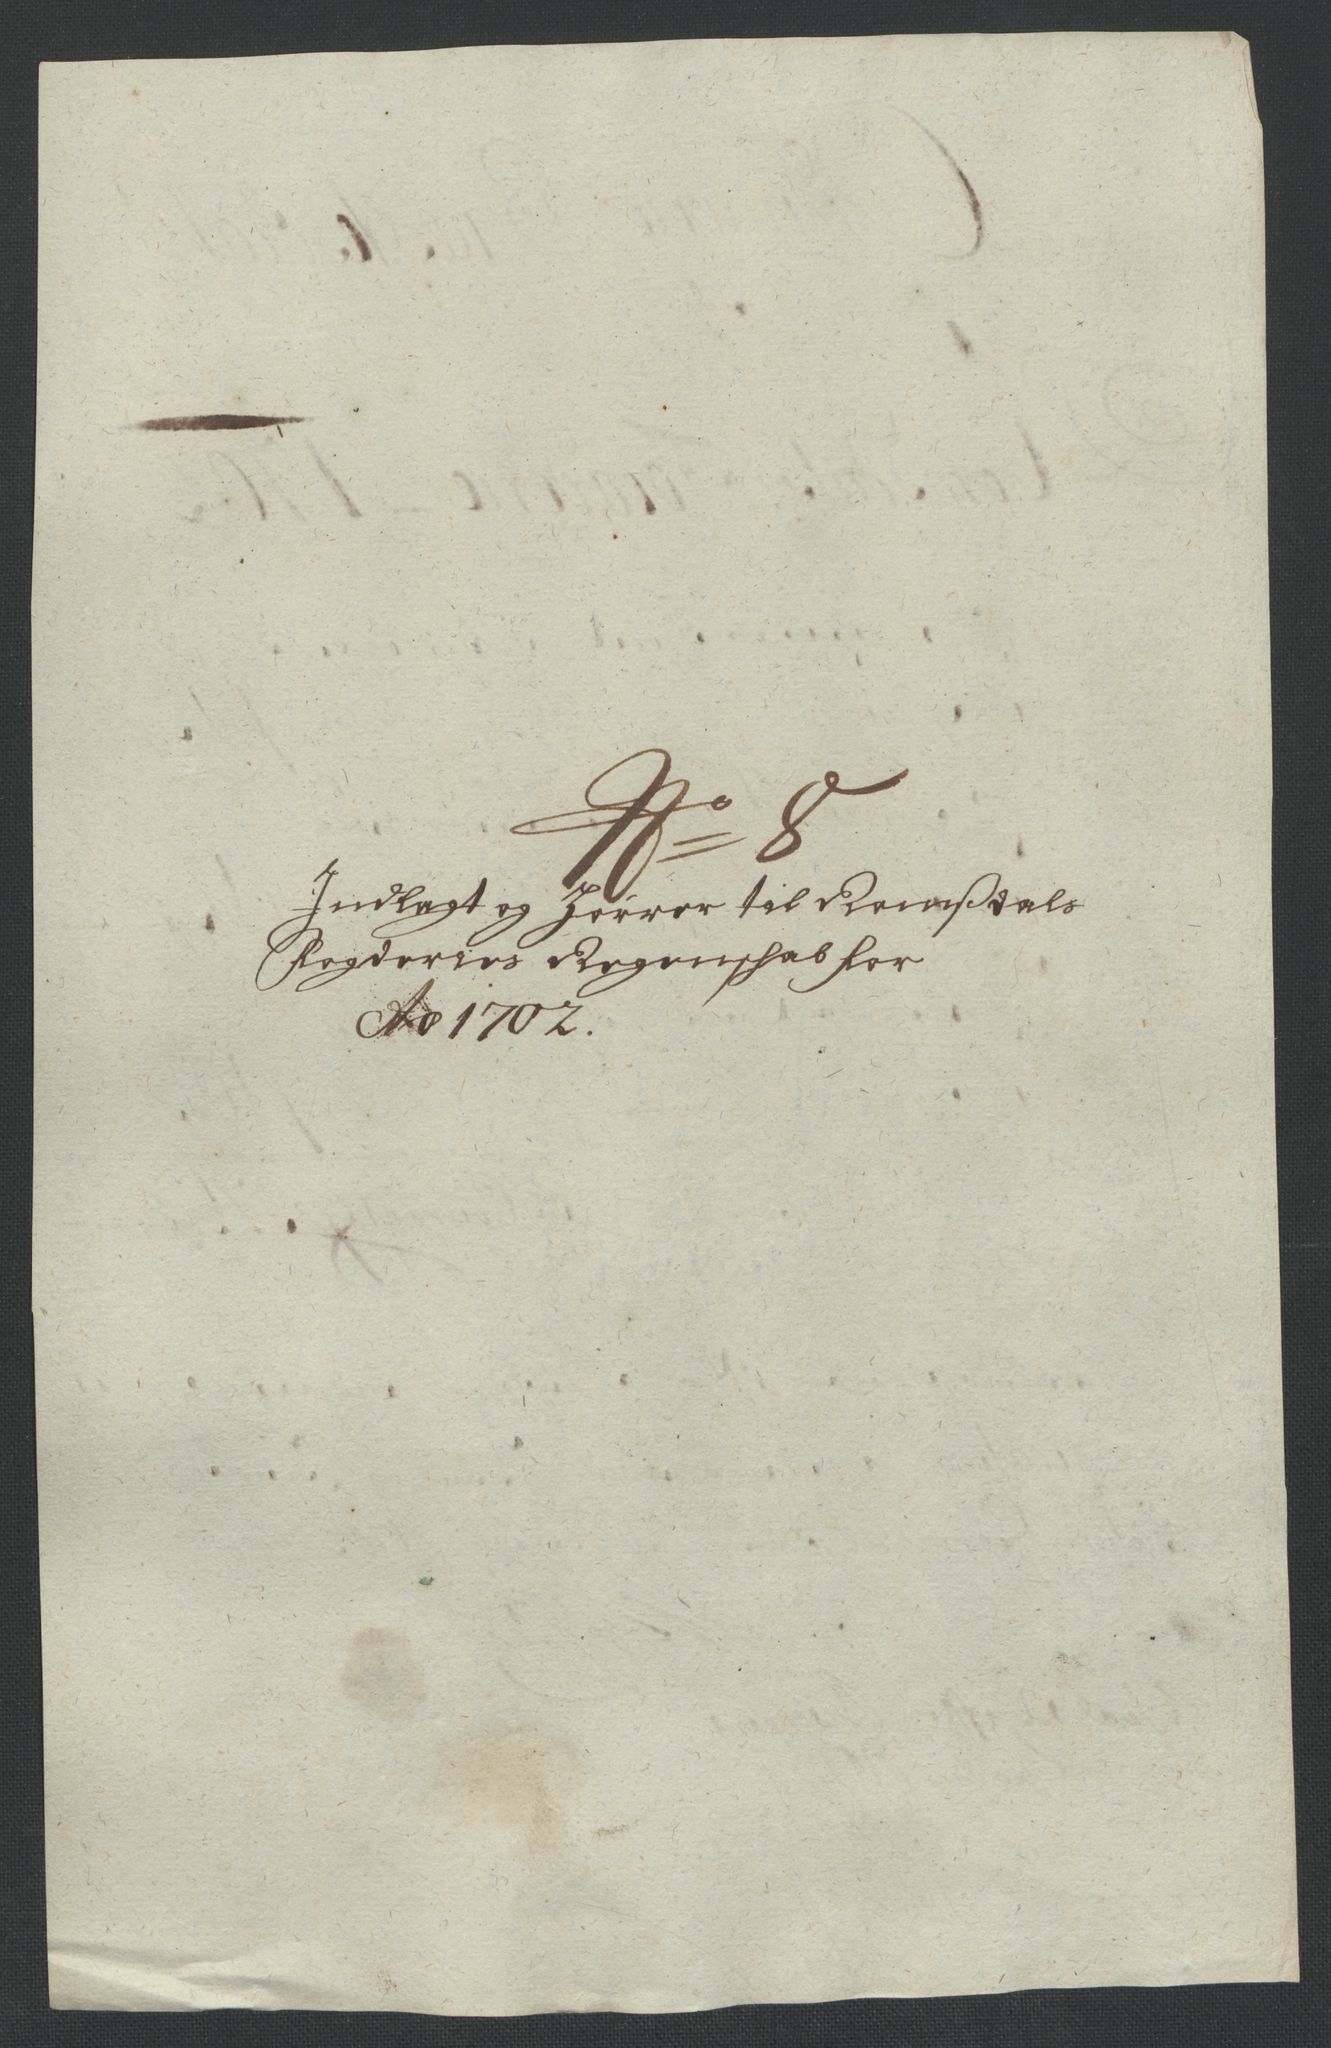 No 8
Indlagt og hører til Romßdals
Fogderies Regenschab for
Ao 1702.